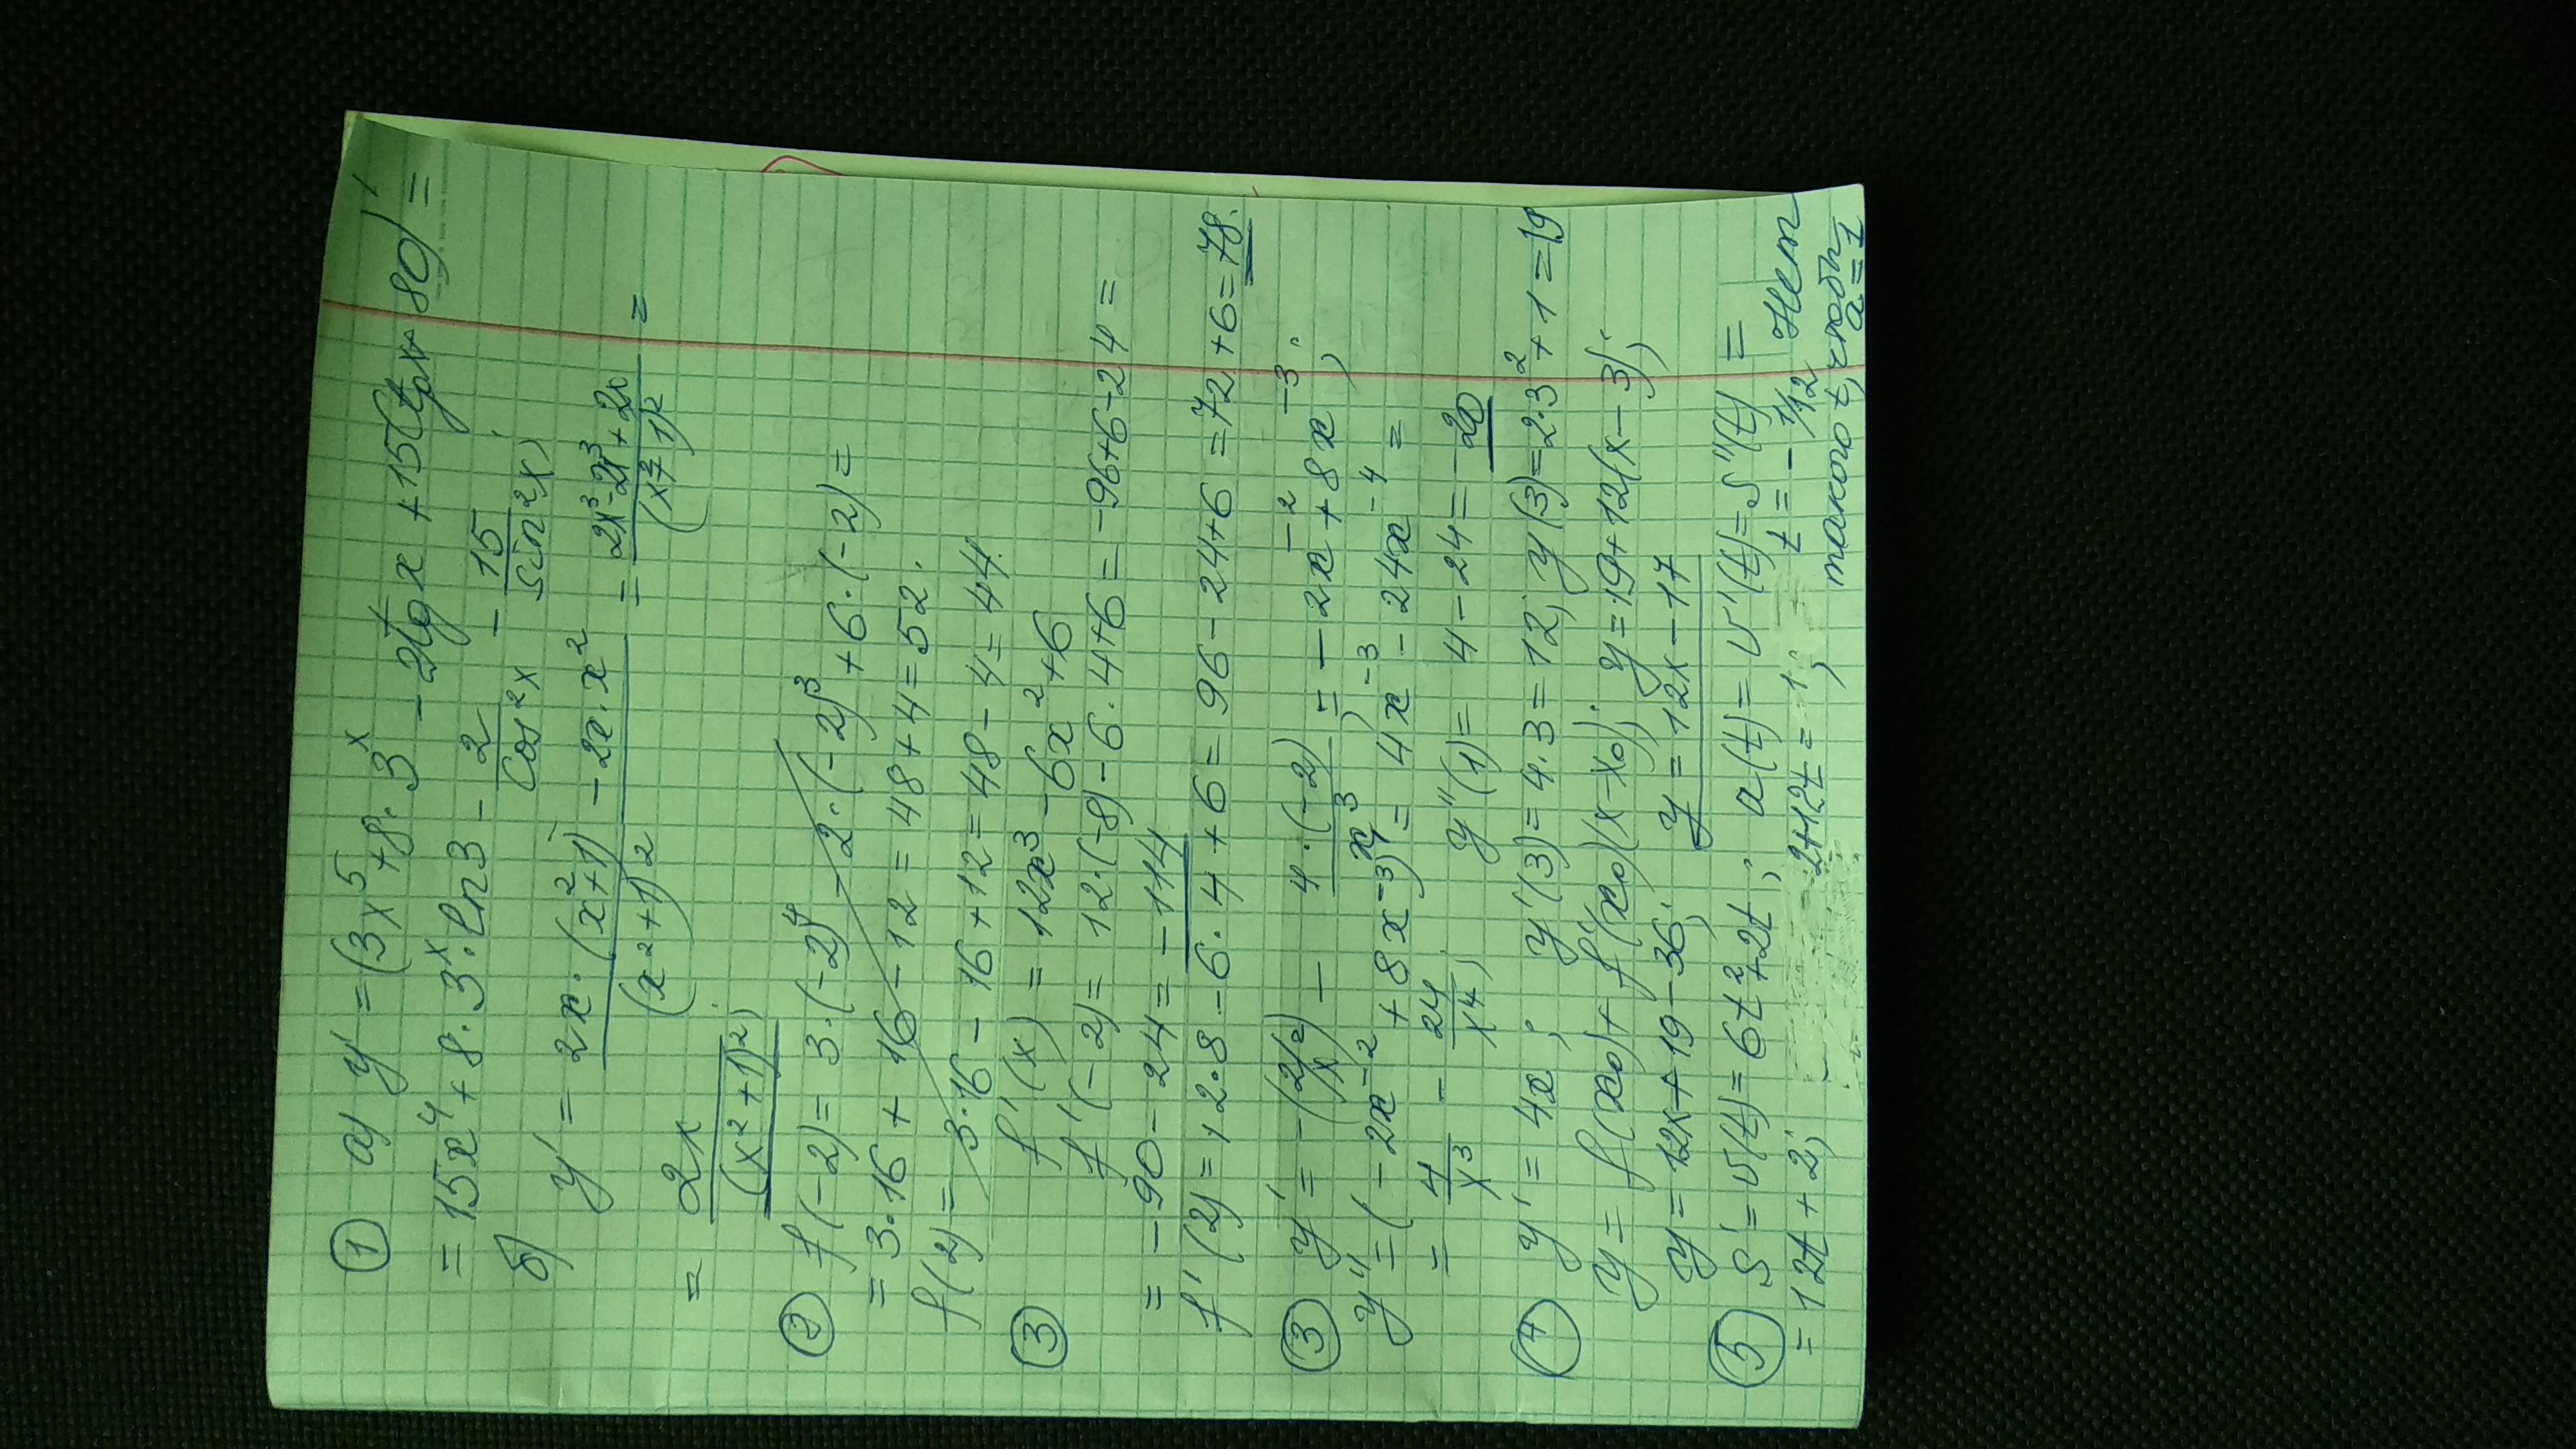 ① а) y' = (3x⁵ + 8·3ˣ - 2tgx + 15Ctgx + 80)' =
= 15x⁴ + 8·3ˣ·ln3 - 2/cos²x - 15/sin²x;
б) y' = (2x·(x²+1) - 2x·x²)/(x²+1)² = (2x³ - 2x³ + 2x)/(x²+1)² =
= 2x/(x²+1)²;
② f(-2) = 3·(-2)⁴ - 2·(-2)³ + 6·(-2) =
= 3·16 + 16 - 12 = 48 + 4 = 52.
f(2) = 3·16 - 16 + 12 = 48 - 4 = 44.
③ f'(x) = 12x³ - 6x² + 6
f'(-2) = 12·(-8) - 6·4 + 6 = -96 + 6 - 24 =
= -90 - 24 = -114
f'(2) = 12·8 - 6·4 + 6 = 96 - 24 + 6 = 72 + 6 = 78.
③ y' = -(2/x²) - 4·(-2)/x³ = -2x⁻² + 8x⁻³;
y'' = (-2x⁻² + 8x⁻³)' = 4x⁻³ - 24x⁻⁴ =
= 4/x³ - 24/x⁴; y''(1) = 4 - 24 = -20
④ y' = 4x; y'(3) = 4·3 = 12; y(3) = 2·3² + 1 = 19
y = f(x₀) + f'(x₀)(x - x₀); y = 19 + 12(x - 3);
y = 12x + 19 - 36; y = 12x - 17
⑤ S' = v(t) = 6t² + 2t; a(t) = v'(t) = S''(t) =
= 12t + 2; 2+12t = 1; t = -1/12 Нет
такого t, чтобы
a = 1